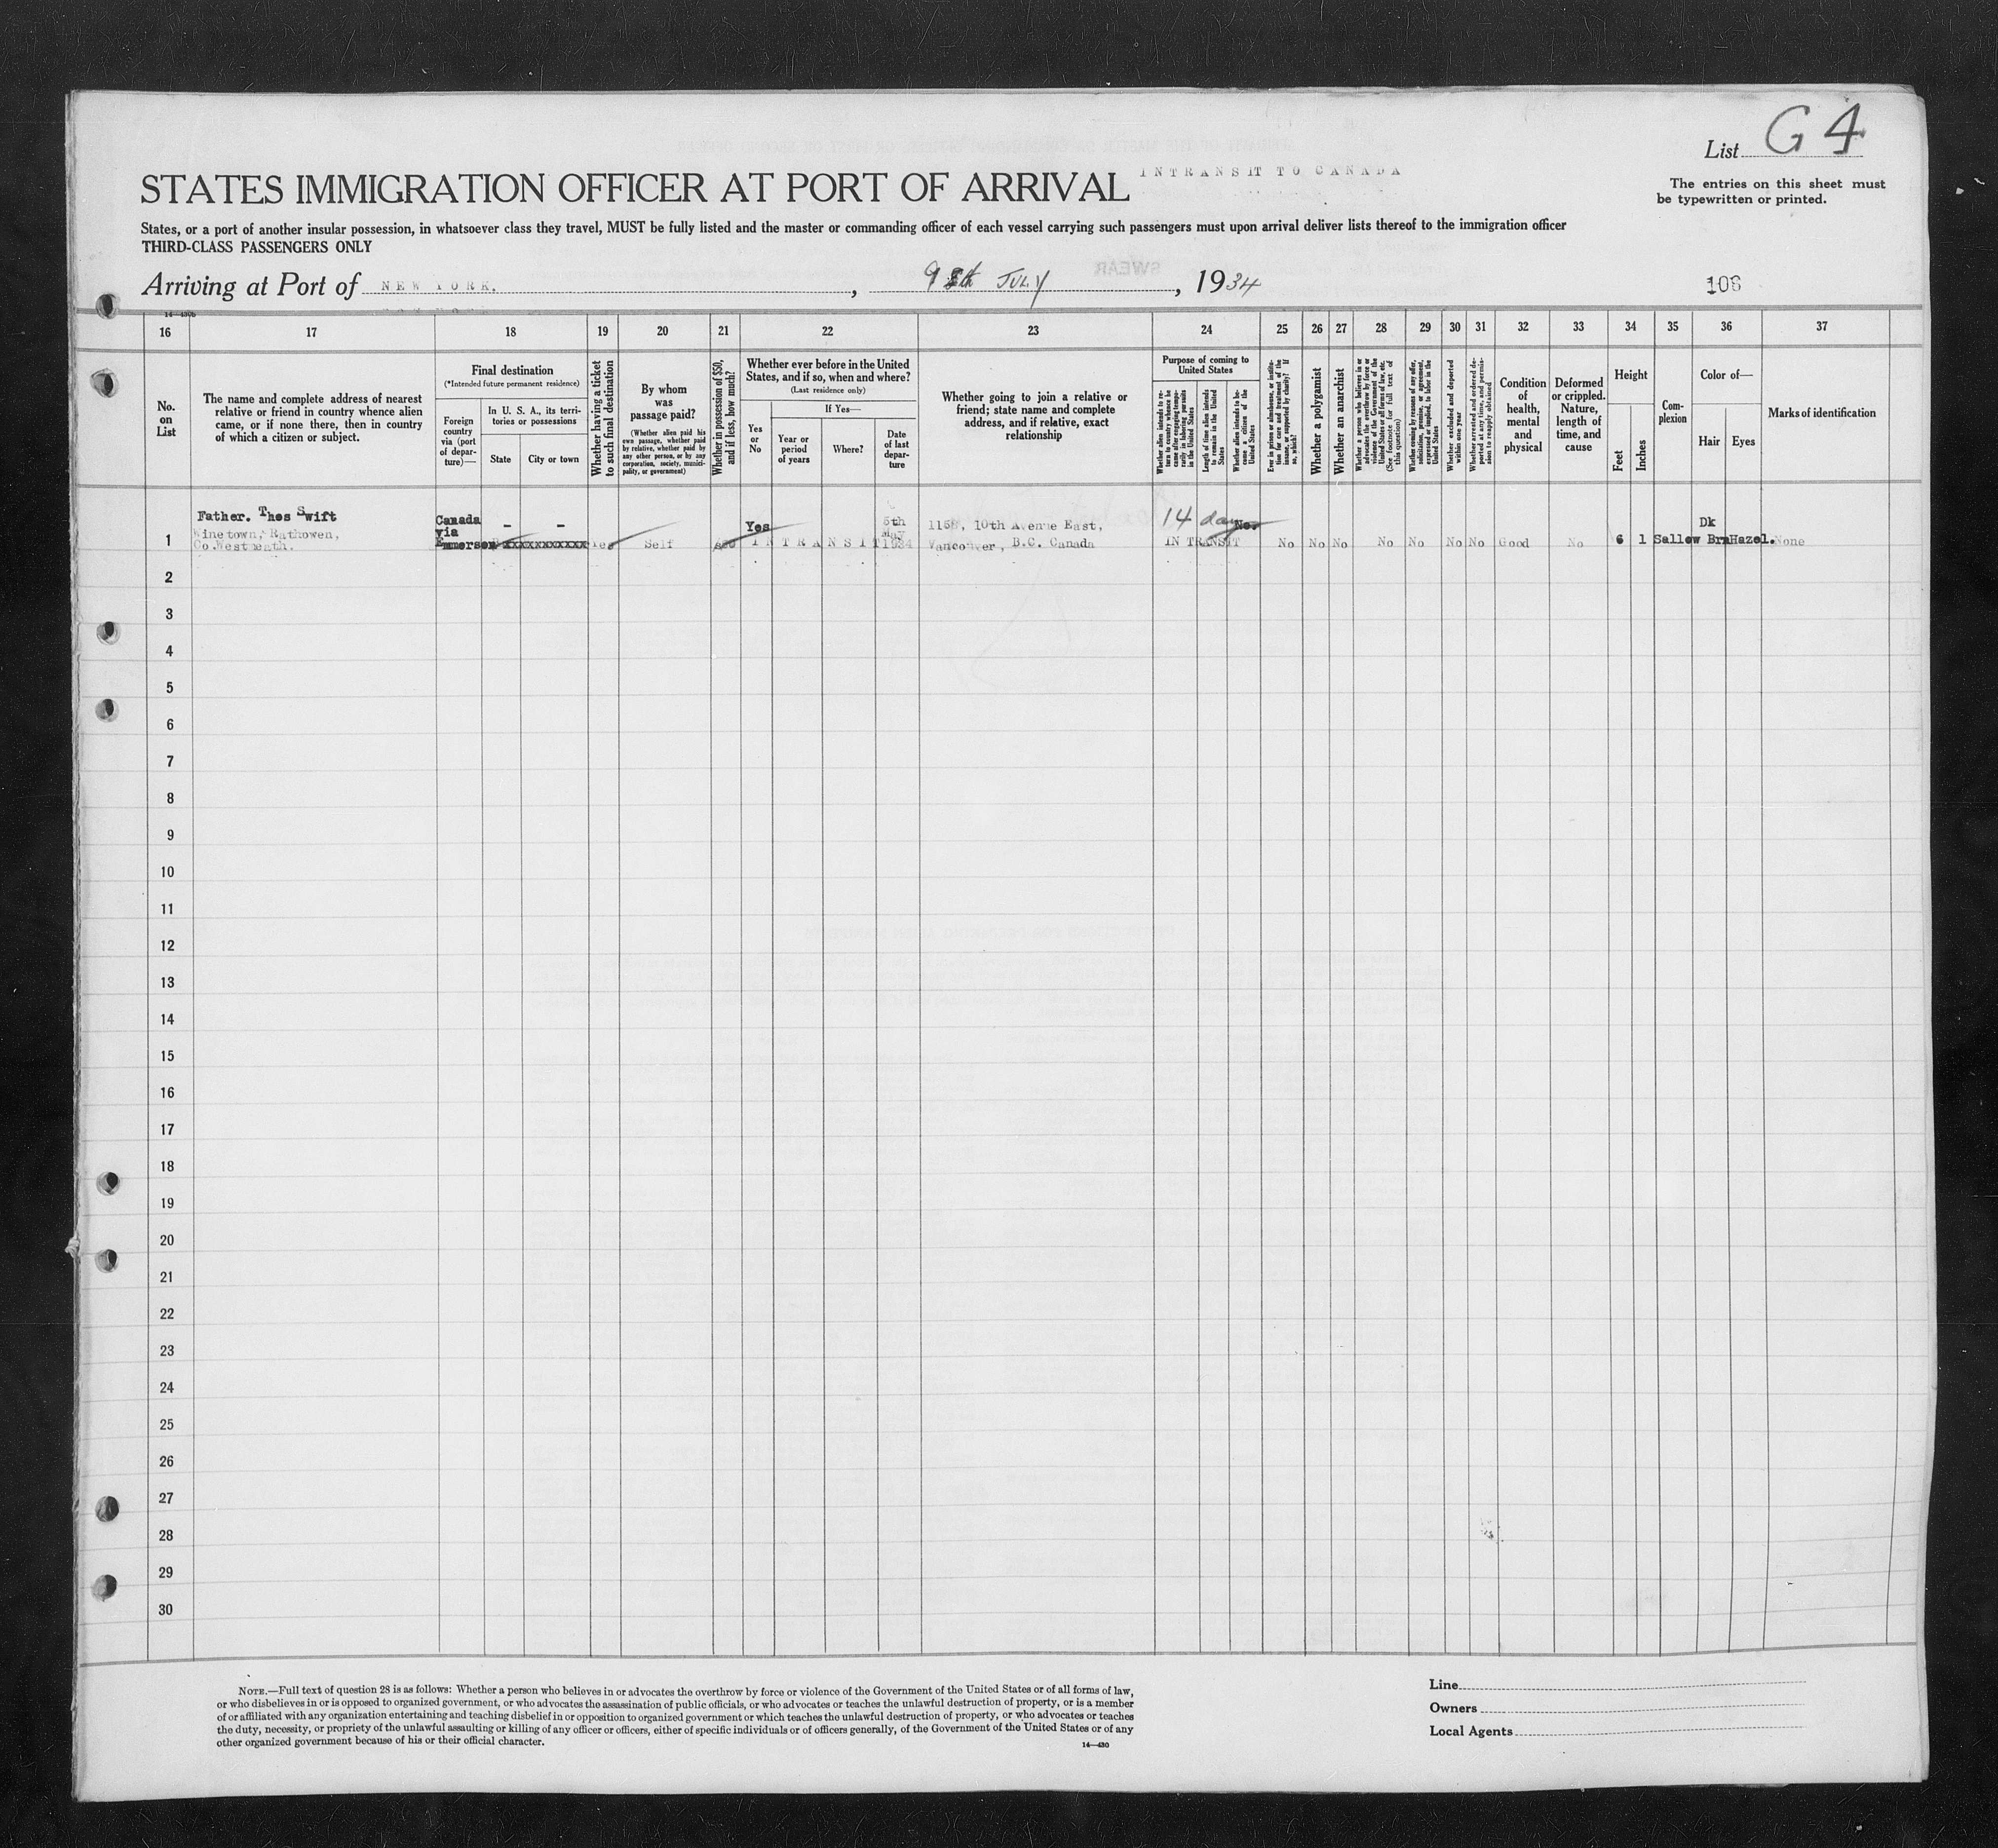 List G 4
INTRANSIT TO CANADA
STATES IMMIGRATION OFFICER AT PORT OF ARRIVAL
The entries on this sheet must
be typewritten or printed.
States, or a port of another insular possession, in whatsoever class they travel, MUST be fully listed and the master or commanding officer of each vessel carrying such passengers must upon arrival deliver lists thereof to the immigration officer
THIRD-CLASS PASSENGERS ONLY
SWEAR
Arriving at Port of NEW YORK. , JULY , 1934
108
16 17 18 19 20 21 22 23 24 25 26 27 28 29 30 31 32 33 34 35 36 37
No.
on
List
The name and complete address of nearest
relative or friend in country whence alien
came, or if none there, then in country
of which a citizen or subject.
Final destination
(*Intended future permanent residence)
Foreign
country
via (port
of depar-
ture)—
In U. S. A., its terri-
tories or possessions
State
City or town
Whether having a ticket
to such final destination
By whom
was
passage paid?
(Whether alien paid his
own passage, whether paid
by relative, whether paid by
any other person, or by any
corporation, society, munici-
pality, or government)
Whether in possession of $50,
and if less, how much?
Whether ever before in the United
States, and if so, when and where?
(Last residence only)
Yes
or
No
If Yes—
Year or
period
of years
Where?
Date
of last
depar-
ture
Whether going to join a relative or
friend; state name and complete
address, and if relative, exact
relationship
Purpose of coming to
United States
Whether alien intends to re-
turn to country whence he
came after engaging tempo-
rarily in laboring pursuits
in the United States
Length of time alien intends
to remain in the United
States
Whether alien intends to be-
come a citizen of the
United States
Ever in prison or almshouse, or institu-
tion for care and treatment of the
insane, or supported by charity? If
so, which?
Whether a polygamist
Whether an anarchist
Whether a person who believes in or
advocates the overthrow by force or
violence of the Government of the
United States or all forms of law, etc.
(See footnote for full text of
this question)
Whether coming by reasons of any offer,
solicitation, promise, or agreement,
expressed or implied, to labor in the
United States
Whether excluded and deported
within one year
Whether arrested and ordered de-
ported at any time, and permis-
sion to reapply obtained
Condition
of
health,
mental
and
physical
Deformed
or crippled.
Nature,
length of
time, and
cause
Height
Feet
Inches
Com-
plexion
Color of—
Hair
Eyes
Marks of identification
Father. Thos Swift
Winetown, Rathowen,
Co.Westmeath.
Canada
via
Emmerson
- -
xxxxxxxxxxx
Yes
Self
Yes
INTRANSIT
5th
May
1934
1158, 10th Avenue East,
Vancouver, B.C. Canada
14 days
No.
IN TRANSIT
No No No No No No No Good No 6 1 Sallow
Dk
Brn Hazel. None
1
2
3
4
5
6
7
8
9
10
11
12
13
14
15
16
17
18
19
20
21
22
23
24
25
26
27
28
29
30
NOTE.—Full text of question 28 is as follows: Whether a person who believes in or advocates the overthrow by force or violence of the Government of the United States or of all forms of law,
or who disbelieves in or is opposed to organized government, or who advocates the assassination of public officials, or who advocates or teaches the unlawful destruction of property, or is a member
of or affiliated with any organization entertaining and teaching disbelief in or opposition to organized government or which teaches the unlawful destruction of property, or who advocates or teaches
the duty, necessity, or propriety of the unlawful assaulting or killing of any officer or officers, either of specific individuals or of officers generally, of the Government of the United States or of any
other organized government because of his or their official character.
14—430
Line
Owners
Local Agents